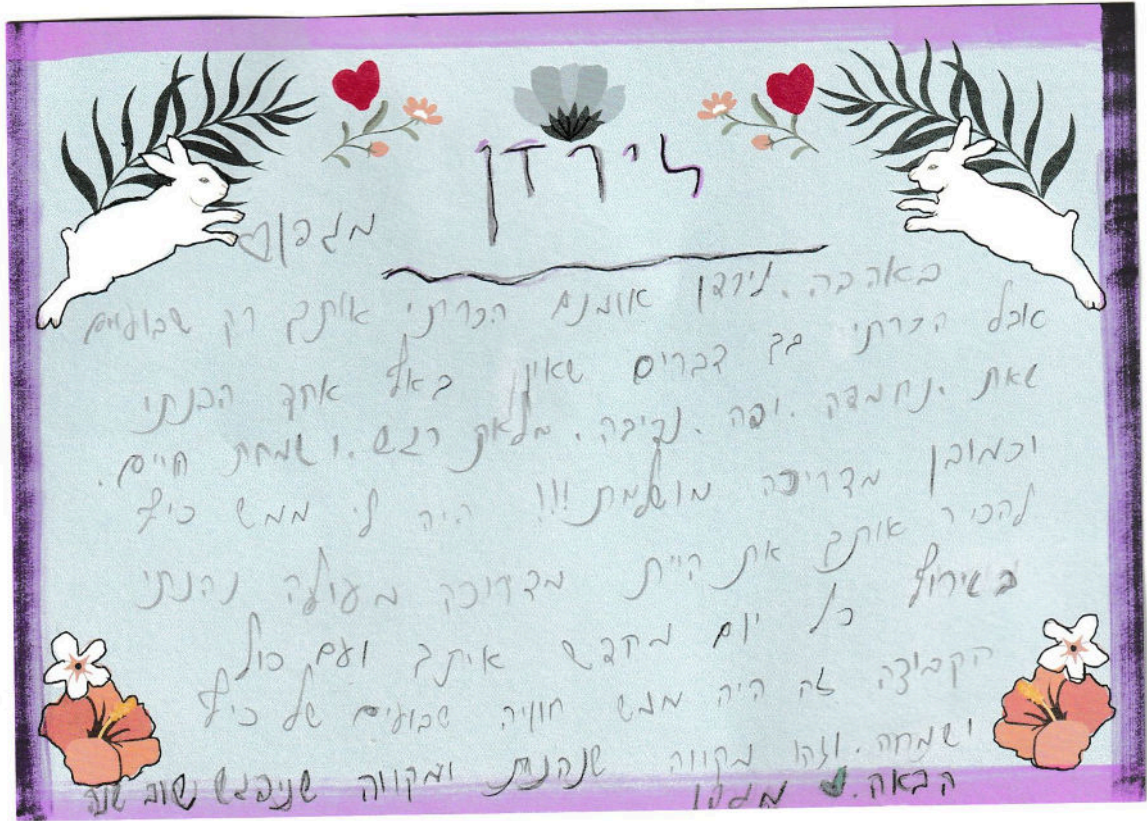 לירדן
מגפן
באהבה. לירדן אומנם הכרתי אותך רק שבועיים
אבל הכרתי בך דברים שאין באף אחד הבנתי
שאת .נחמדה .יפה .נדיבה. מלאת רגש. ושמחת חיים.
וכמובן מדריכה מושלמת!!! היה לי ממש כיף
להכיר אותך את היית מדריכה מעולה נהנתי
באירוע כל יום מחדש איתך ועם כול
הקבוצה זה היה ממש חוויה שבועיים של כיף
ושמחה. וזהו מקווה שנהנת ומקווה שניפגש שוב שנה
הבאה. מגפן